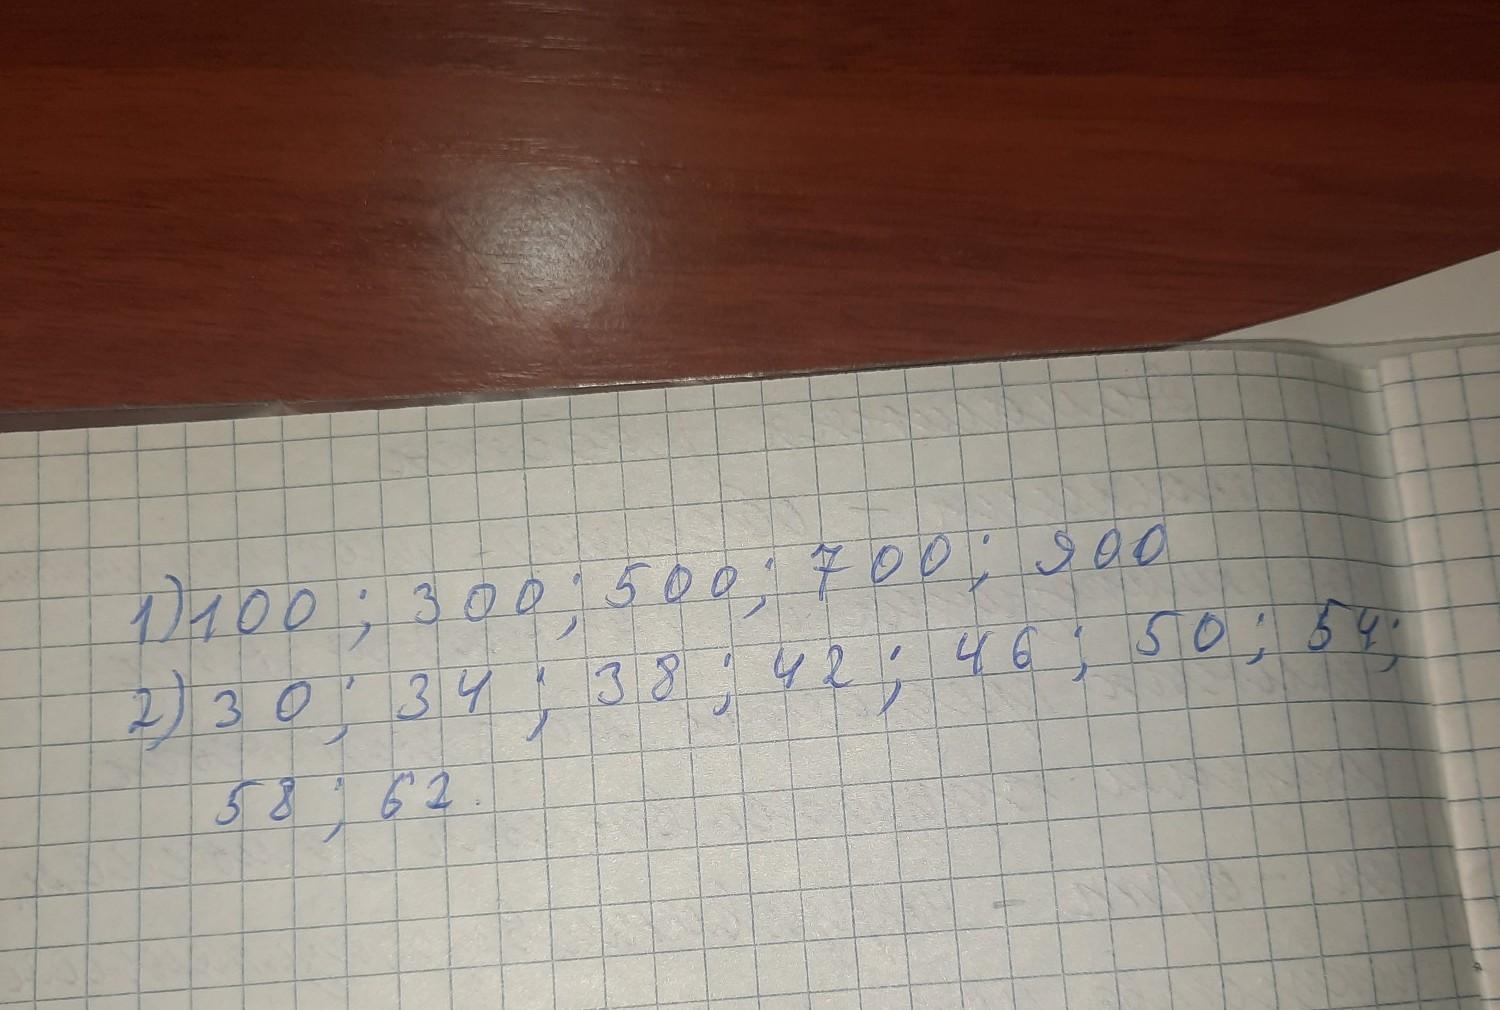 1) 100 ; 300 ; 500 ; 700 ; 900
2) 30 ; 34 ; 38 ; 42 ; 46 ; 50 ; 54 ;
58 ; 62.